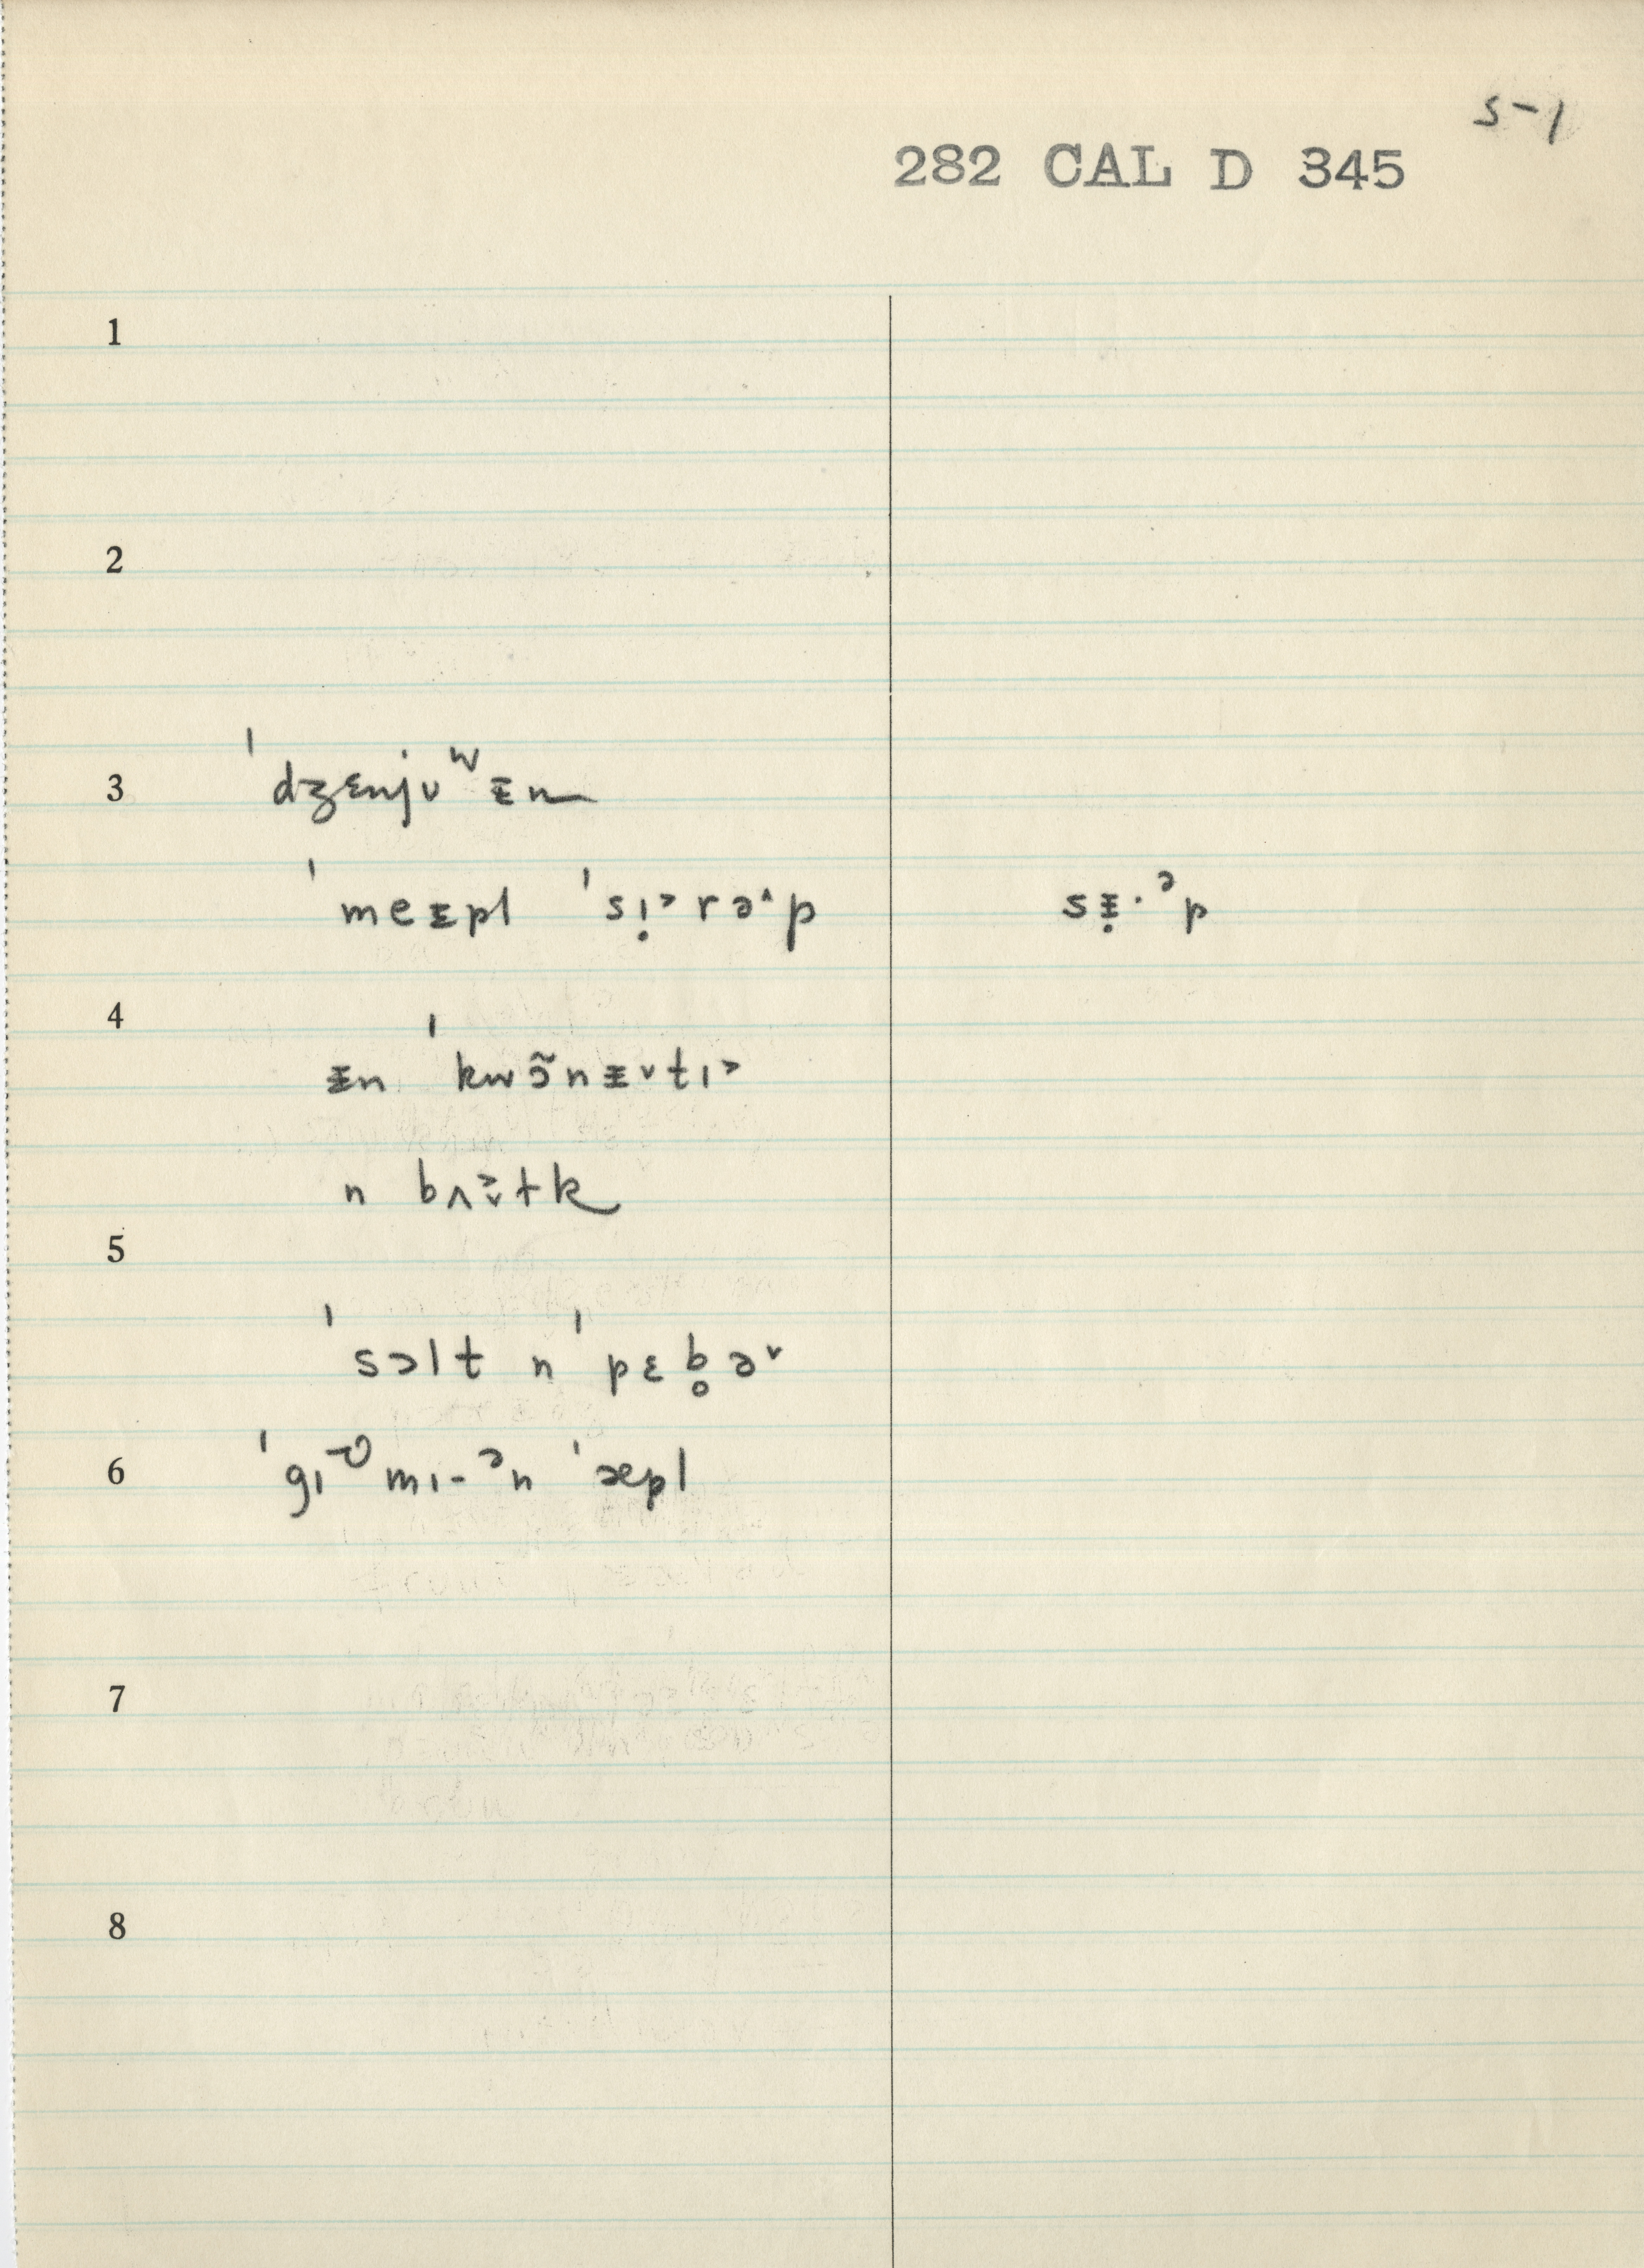 s-1
282 CAL D 345
1
2
3 ˈdʒɛnjʊʷᵻn
ˈmeᵻpl ˈsɪ̣˃rə˄p sᵻ̣·ᵊp
4
ᵻn ˈkwɔ̃nᵻ˅tɪ˃
n bʌ˃̬tk
5
ˈsɔlt n ˈpɛb̥ə˅
6 ˈgɪmɪ-ᵊn ˈæpl
7
8